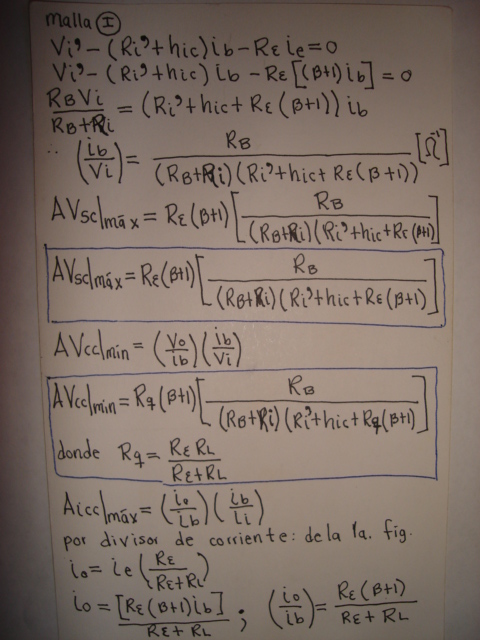 Malla (I)
Vi' - (Ri' + hic) ib - RE ie = 0
Vi' - (Ri' + hic) ib - RE [(β+1) ib] = 0
RB Vi / RB + Ri = (Ri' + hic + RE (β+1)) ib
∴ (ib / Vi) = RB / (RB + Ri) (Ri' + hic + RE (β+1)) [Ω⁻¹]
AVsc|máx = RE (β+1) [RB / (RB + Ri) (Ri' + hic + RE (β+1)]
AVsc|máx = RE (β+1) [RB / (RB + Ri) (Ri' + hic + RE (β+1)]
AVcc|mín = (Vo / ib) (ib / Vi)
AVcc|mín = Rq (β+1) [RB / (RB + Ri) (Ri' + hic + Rq (β+1)]
donde Rq = RE RL / RE + RL
Aicc|máx = (io / ib) (ib / ii)
por divisor de corriente: de la 1a. fig.
io = ie (RE / RE + RL)
io = [RE (β+1) ib] / RE + RL ; (io / ib) = RE (β+1) / RE + RL